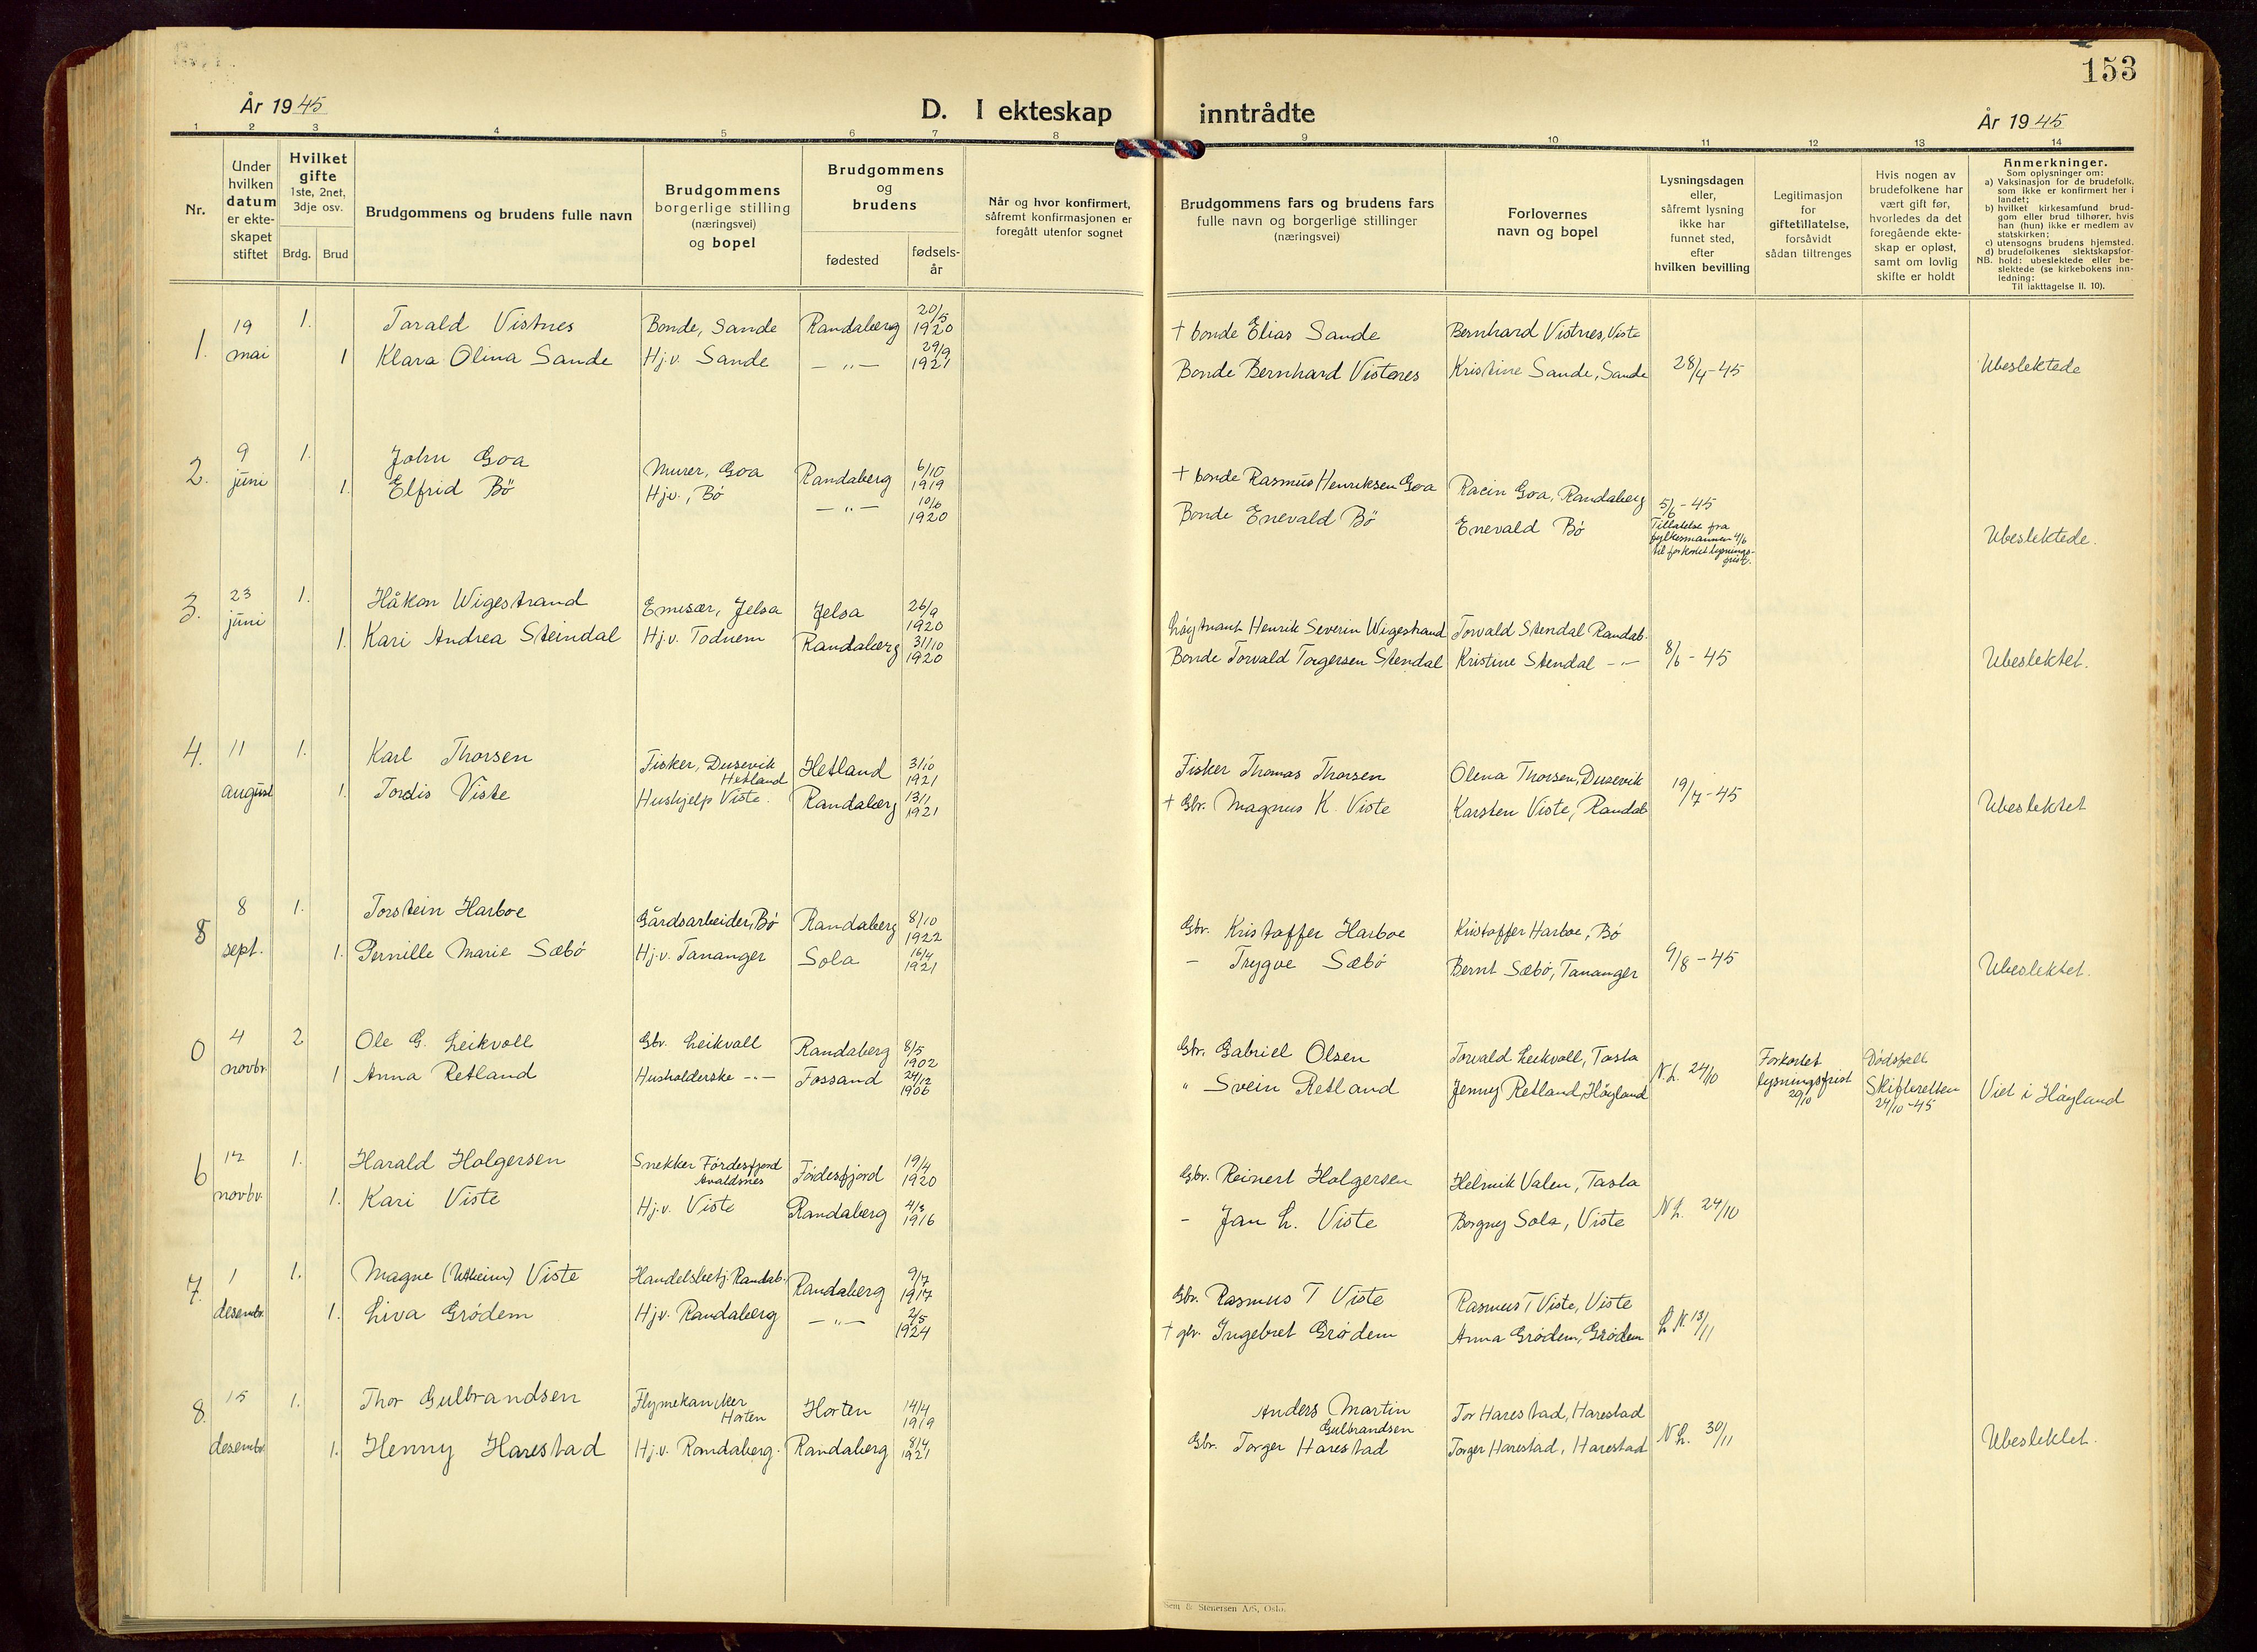 153
År 1945
D. I ekteskap inntrådte
År 1945
1 2 3 4 5 6 7 8 9 10 11 12 13 14
Nr.
Under hvilken datum er ekte-skapet stiftet
Hvilket gifte 1ste, 2net, 3dje osv.
Brdg. Brud
Brudgommens og brudens fulle navn
Brudgommens borgerlige stilling (næringsvei) og bopel
Brudgommens og brudens
fødested
fødsels-år
Når og hvor konfirmert, såfremt konfirmasjonen er foregått utenfor sognet
Brudgommens fars og brudens fars fulle navn og borgerlige stillinger (næringsvei)
Forlovernes navn og bopel
Lysningsdagen eller, såfremt lysning ikke har funnet sted, efter hvilken bevilling
Legitimasjon for giftetillatelse, forsåvidt sådan tiltrenges
Hvis nogen av brudefolkene har vært gift før, hvorledes da det foregående ekte-skap er opløst, samt om lovlig skifte er holdt
Anmerkninger.
Som oplysninger om:
a) Vaksinasjon for de brudefolk, som ikke er konfirmert her i landet;
b) hvilket kirkesamfund brud-gom eller brud tilhører, hvis han (hun) ikke er medlem av statskirken;
c) utensogns brudens hjemsted.
d) brudefolkenes slektskapsfor-hold: ubeslektede eller be-slektede (se kirkebokens inn-ledning:
NB.
Til iakttagelse II. 10).
1. 19 mai 1. Torald Vistnes Bonde, Sande Randaberg 20/5 1920 † bonde Elias Sande Bernhard Vistnes, Viste
1 Klara Olina Sande Hj.v. Sande — „ — 29/9 1921 Bonde Bernhard Vistnes Kristine Sande, Sande 28/4-45 Ubeslektede
2. 9 juni 1. John Goa Murer, Goa Randaberg 6/10 1919 † bonde Rasmus Henriksen Goa Racin Goa, Randaberg 5/6-45
1. Elfrid Bö Hjv., Bö — „ — 10/6 1920 Bonde Enevald Bö Enevald Bö Tillatelse fra fylkesmannen 4/6 til forkortet lysnings-frist. Ubeslektede.
3. 23 juni 1. Håkon Wigestrand Emisær, Jelsa Jelsa 26/9 1920 Löytnant Henrik Severin Wigestrand Torvald Stendal Randab.
1. Kari Andrea Steindal Hj.v. Todnem Randaberg 31/10 1920 Bonde Torvald Torgersen Stendal Kristine Stendal — „ — 8/6-45 Ubeslektet.
4. 11 august 1. Karl Thorsen Fisker, Dusevik Hetland Hetland 31/10 1921 Fisker Thomas Thorsen Olena Thorsen, Dusevik
1. Tordis Viste Hushjelp Viste. Randaberg 13/1 1921 † Gbr. Magnus K. Viste Karsten Viste, Randab 19/7-45 Ubeslektet
8 sept. 1. Torstein Harboe Gårdsarbeider, Bö Randaberg 8/10 1922 Gbr. Kristoffer Harboe Kristoffer Harboe, Bö
1. Pernille Marie Sæbö Hj.v. Tananger Sola 16/4 1921 - Trygve Sæbö Bernt Sæbö, Tananger 9/8-45 Ubeslektet.
0 4 novbr 2 Ole G. Leikvoll Gbr. Leikvoll Randaberg 8/5 1902 Gbr. Gabriel Olsen Torvald Leikvoll, Tasta
1 Anna Retland Husholderske -„- Fossand 24/12 1906 „ Svein Retland Jenny Retland, Höyland N.L. 24/10 Forkortet lysningsfrist 29/10 Dödsfall Skifteretten 24/10-45 Viet i Höyland
6 12 novbr. 1. Harald Holgersen Snekker Fördesfjord Avaldsnes Fördesfjord 19/4 1920 Gbr. Reinert Holgersen Helmik Valen, Tasta
1. Kari Viste Hj.v. Viste Randaberg 4/3 1916 - Jan L. Viste Borgny Sola, Viste N.L. 24/10
7. 1 desembr. 1. Magne (Utheim) Viste Handelsbetj. Randab. Randaberg 9/7 1917 Gbr. Rasmus T Viste Rasmus T Viste, Viste
1. Liva Grödem Hj.v. Randaberg — „ — 2/5 1924 † gbr. Ingebret Grödem Anna Grödem, Grödem L N. 13/11
8. 15 desembr. 1. Thor Gulbrandsen Flymekaniker Horten Horten 14/4 1919 Anders Martin Gulbrandsen Tor Harestad, Harestad
1. Henny Harestad Hj.v. Randaberg. Randaberg 8/4 1921 Gbr. Torger Harestad Torger Harestad, Harestad N.L. 30/11 Ubeslektet.
Sem & Stenersen A/S, Oslo.